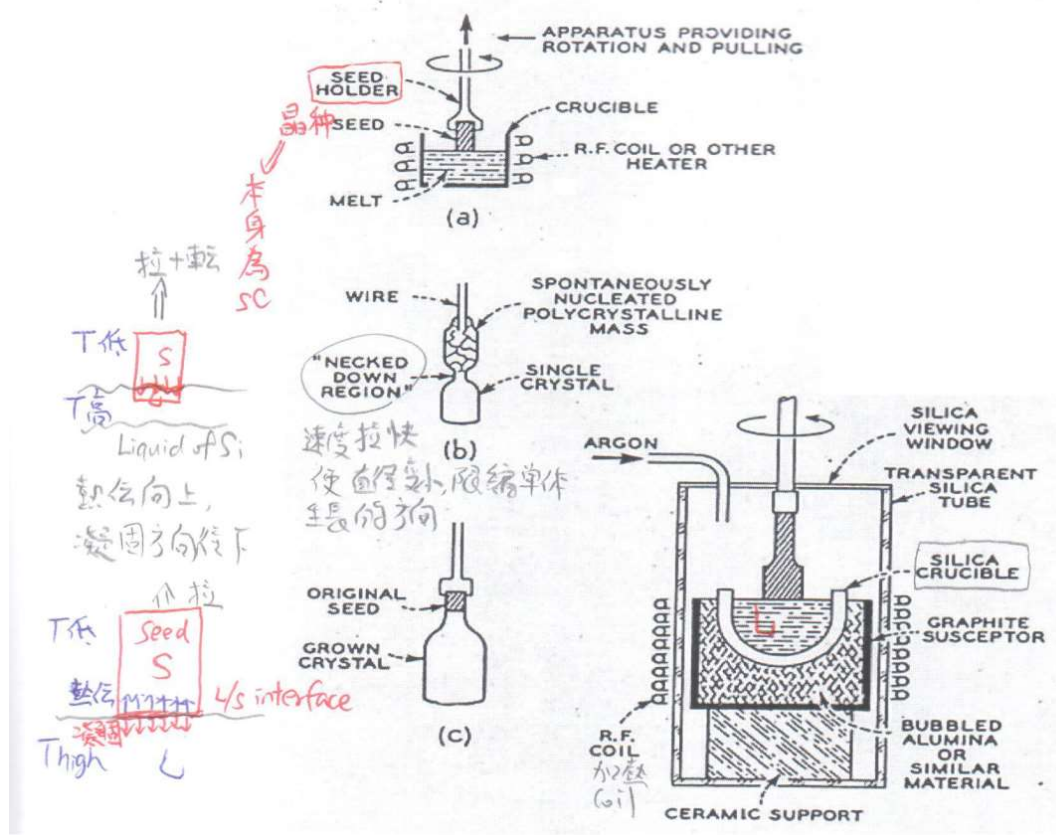 APPARATUS PROVIDING
ROTATION AND PULLING
SEED
HOLDER
CRUCIBLE
SEED
晶种
R.F. COIL OR OTHER
HEATER
MELT
(a)
本身為
SC
拉+転
T低
S
T高
L
Liquid of Si
熱伝向上,
凝固方向往下
WIRE
SPONTANEOUSLY
NUCLEATED
POLYCRYSTALLINE
MASS
"NECKED
DOWN
REGION"
SINGLE
CRYSTAL
(b)
速度拉快
使直径變小,限縮单体
生長的方向
ORIGINAL
SEED
GROWN
CRYSTAL
(c)
拉
T低
Seed
S
熱伝
L/S interface
凝固
Thigh
L
ARGON
SILICA
VIEWING
WINDOW
TRANSPARENT
SILICA
TUBE
SILICA
CRUCIBLE
L
GRAPHITE
SUSCEPTOR
R.F.
COIL
加熱
Coil
BUBBLED
ALUMINA
OR
SIMILAR
MATERIAL
CERAMIC SUPPORT